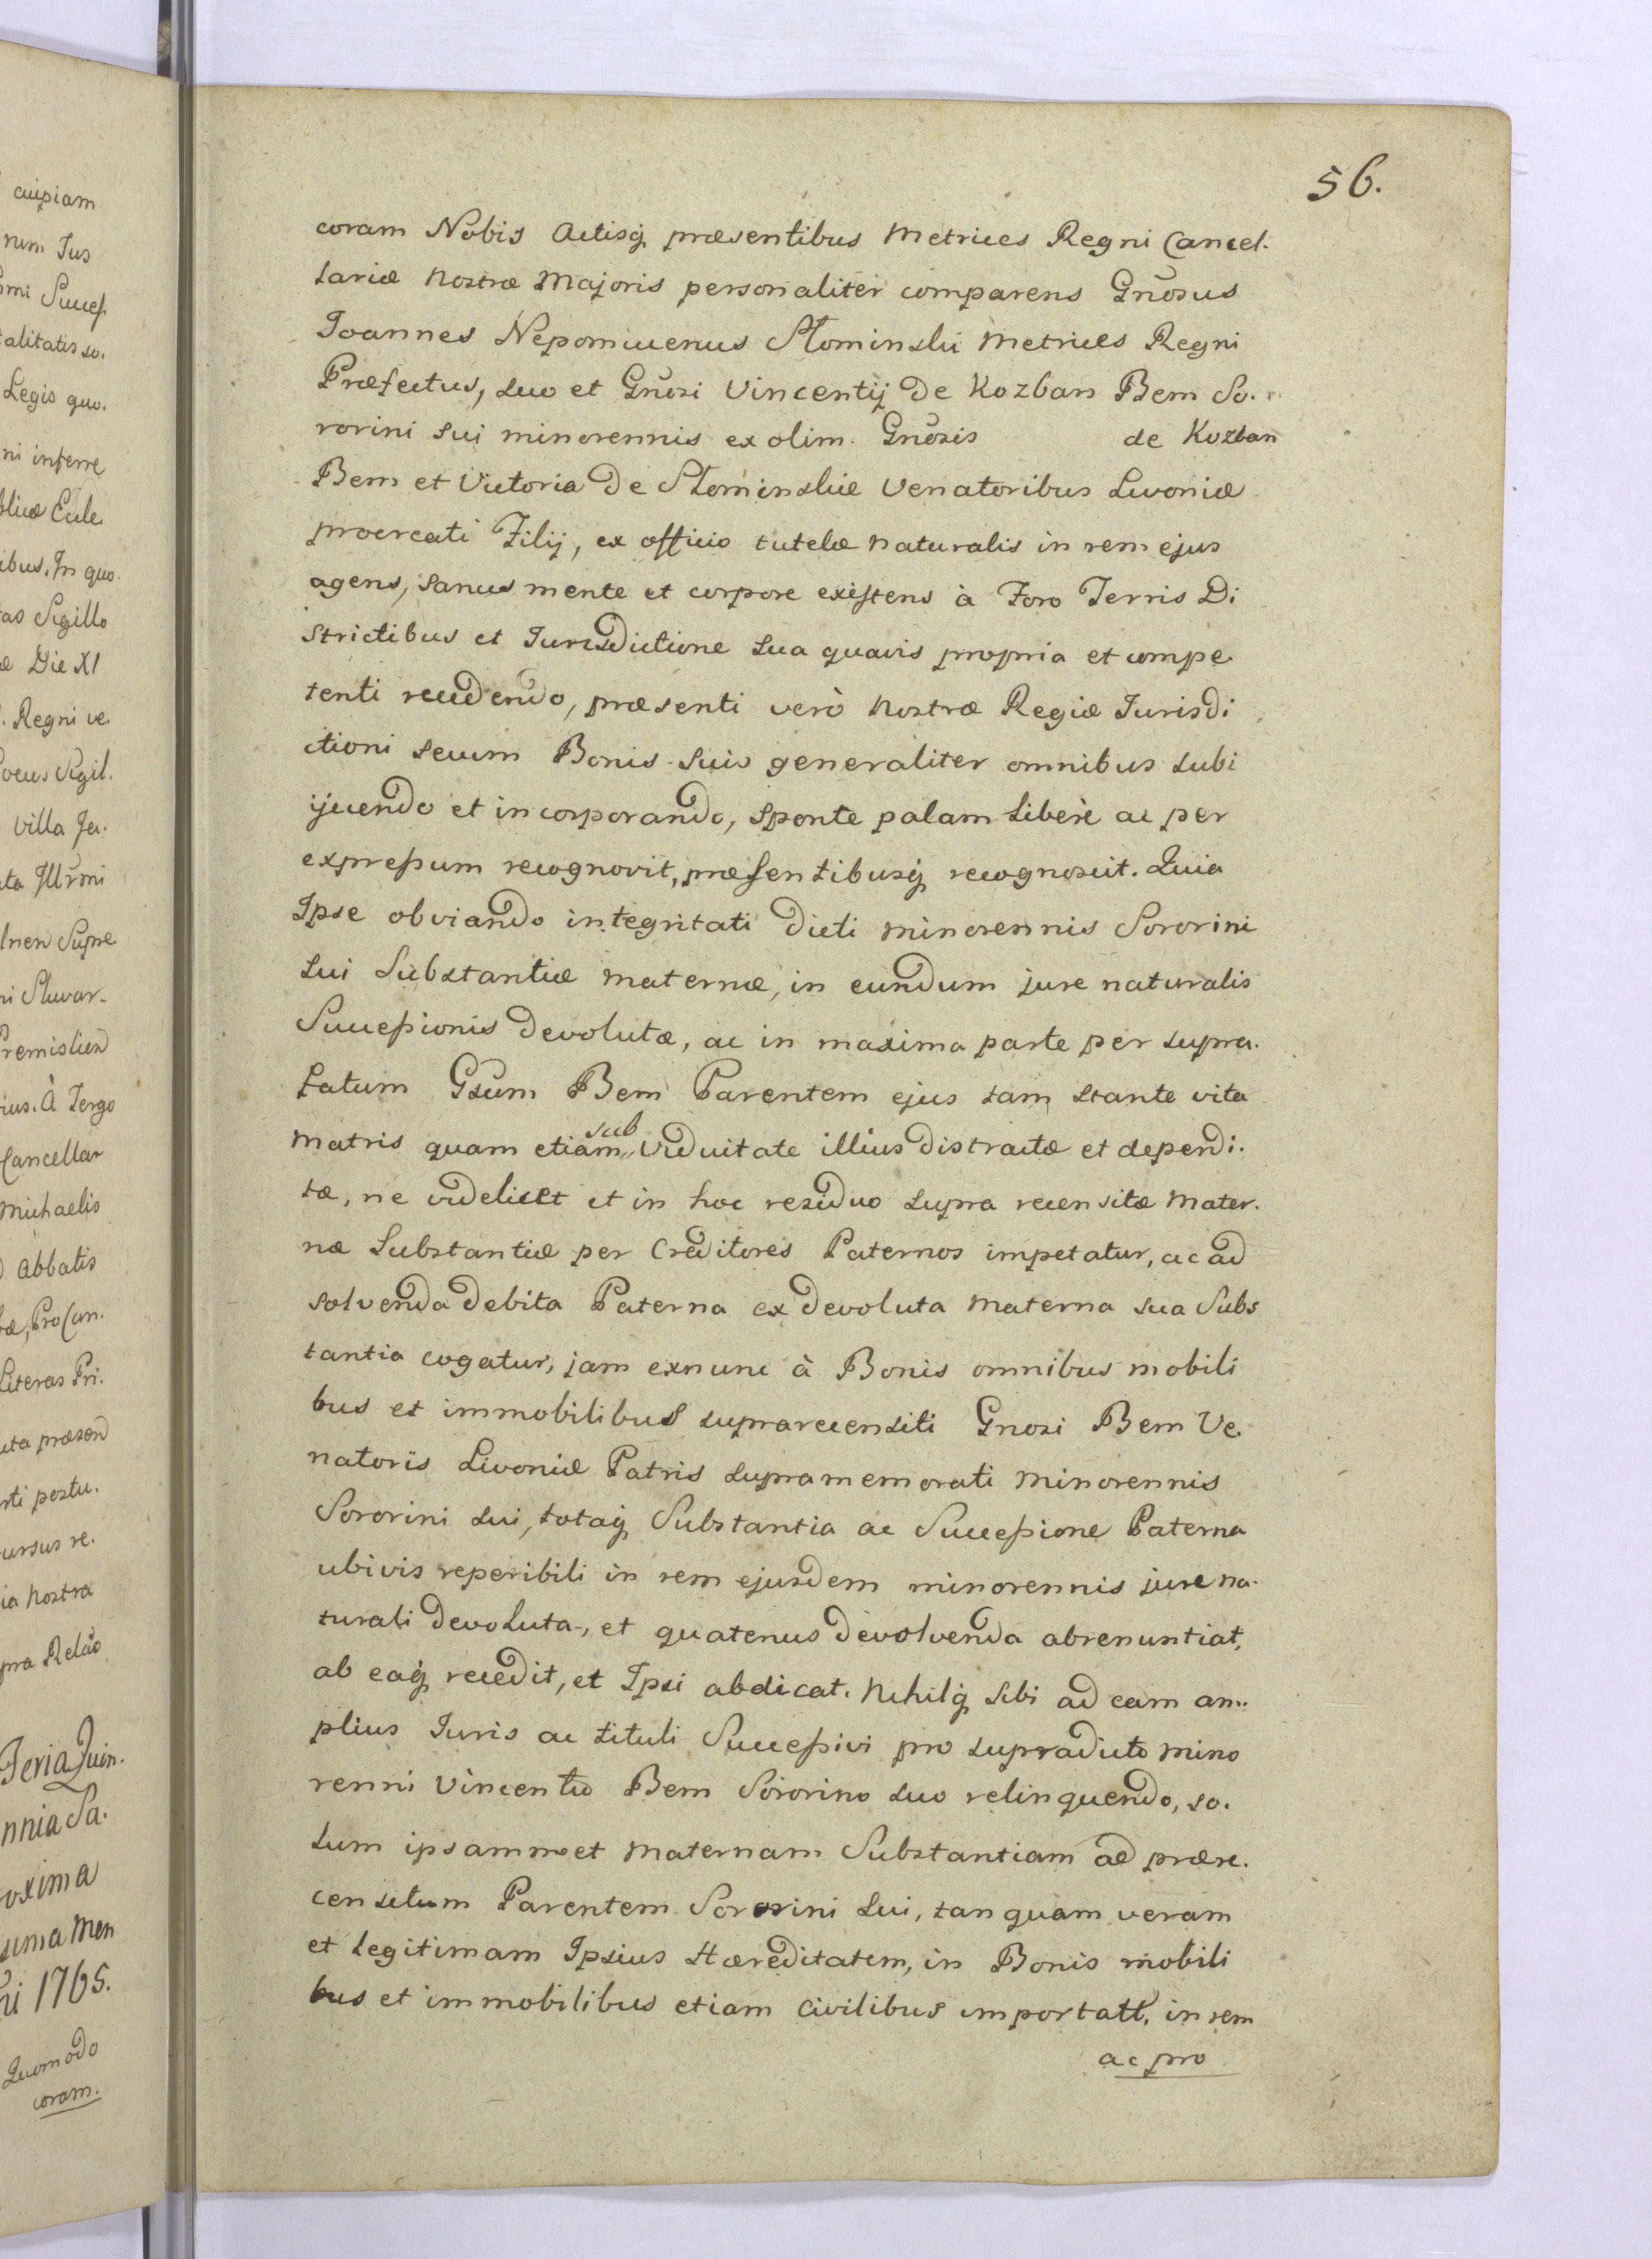 56.
coram Nobis Actisq́ præsentibus Metrices Regni Cancel-
lariæ Nostræ Majoris personaliter comparens Gnõsus
Joannes Nepomucenus Słominski Metrices Regni
Præfectus, suo et Gnõsi Vincentij de Kozban Bem So-
rorini sui minorennis ex olim Gnõsis de Kozban
Bem et Victoria de Słominskie Venatoribus Livoniæ
procreati Filij, ex officio tutelæ naturalis in rem ejus
agens, sanus mente et corpore existens à Foro Terris Di
strictibus et Jurisdictione sua quavis propria et compe-
tenti recedendo, præsenti verò Nostræ Regiæ Jurisdi
ctioni secum Bonis suis generaliter omnibus subi
ijciendo et incorporando, sponte palam liberè ac per
expressum recognovit, præsentibusq́ recognoscit. Quia
Ipse obviando integritati dicti minorennis Sororini
sui Substantiæ maternæ, in eundum jure naturalis
Successionis devolutæ, ac in maxima parte per supra-
latum Gsum Bem Parentem ejus tam stante vita
Matris quam etiam sub Viduitate illius distractæ et deperdi-
tæ, ne videlicet et in hoc residuo supra recensitæ Mater-
næ Substantiæ per Creditores Paternos impetatur, ac ad
solvenda debita Paterna ex devoluta Materna sua Subs
tantia cogatur, jam exnunc à Bonis omnibus mobili
bus et immobilibus suprarecensiti Gnosi Bem Ve-
natoris Livoniæ Patris supramemorati minorennis
Sororini sui, totaq́ Substantia ac Successione Paterna
ubivis reperibili in rem ejusdem minorennis jure na-
turali devoluta, et quatenus devolvenda abrenuntiat,
ab eaq́ recedit, et Ipsi abdicat. Nihilq́ sibi ad eam am-
plius Juris ac tituli Successivi pro supradicto mino
renni Vincentio Bem Sororino suo relinquendo, so-
lum ipsammet Maternam Substantiam ad prære-
censitum Parentem Sororini sui, tanquam veram
et legitimam Ipsius Hæreditatem, in Bonis mobili
bus et immobilibus etiam civilibus importatt, in rem
ac pro